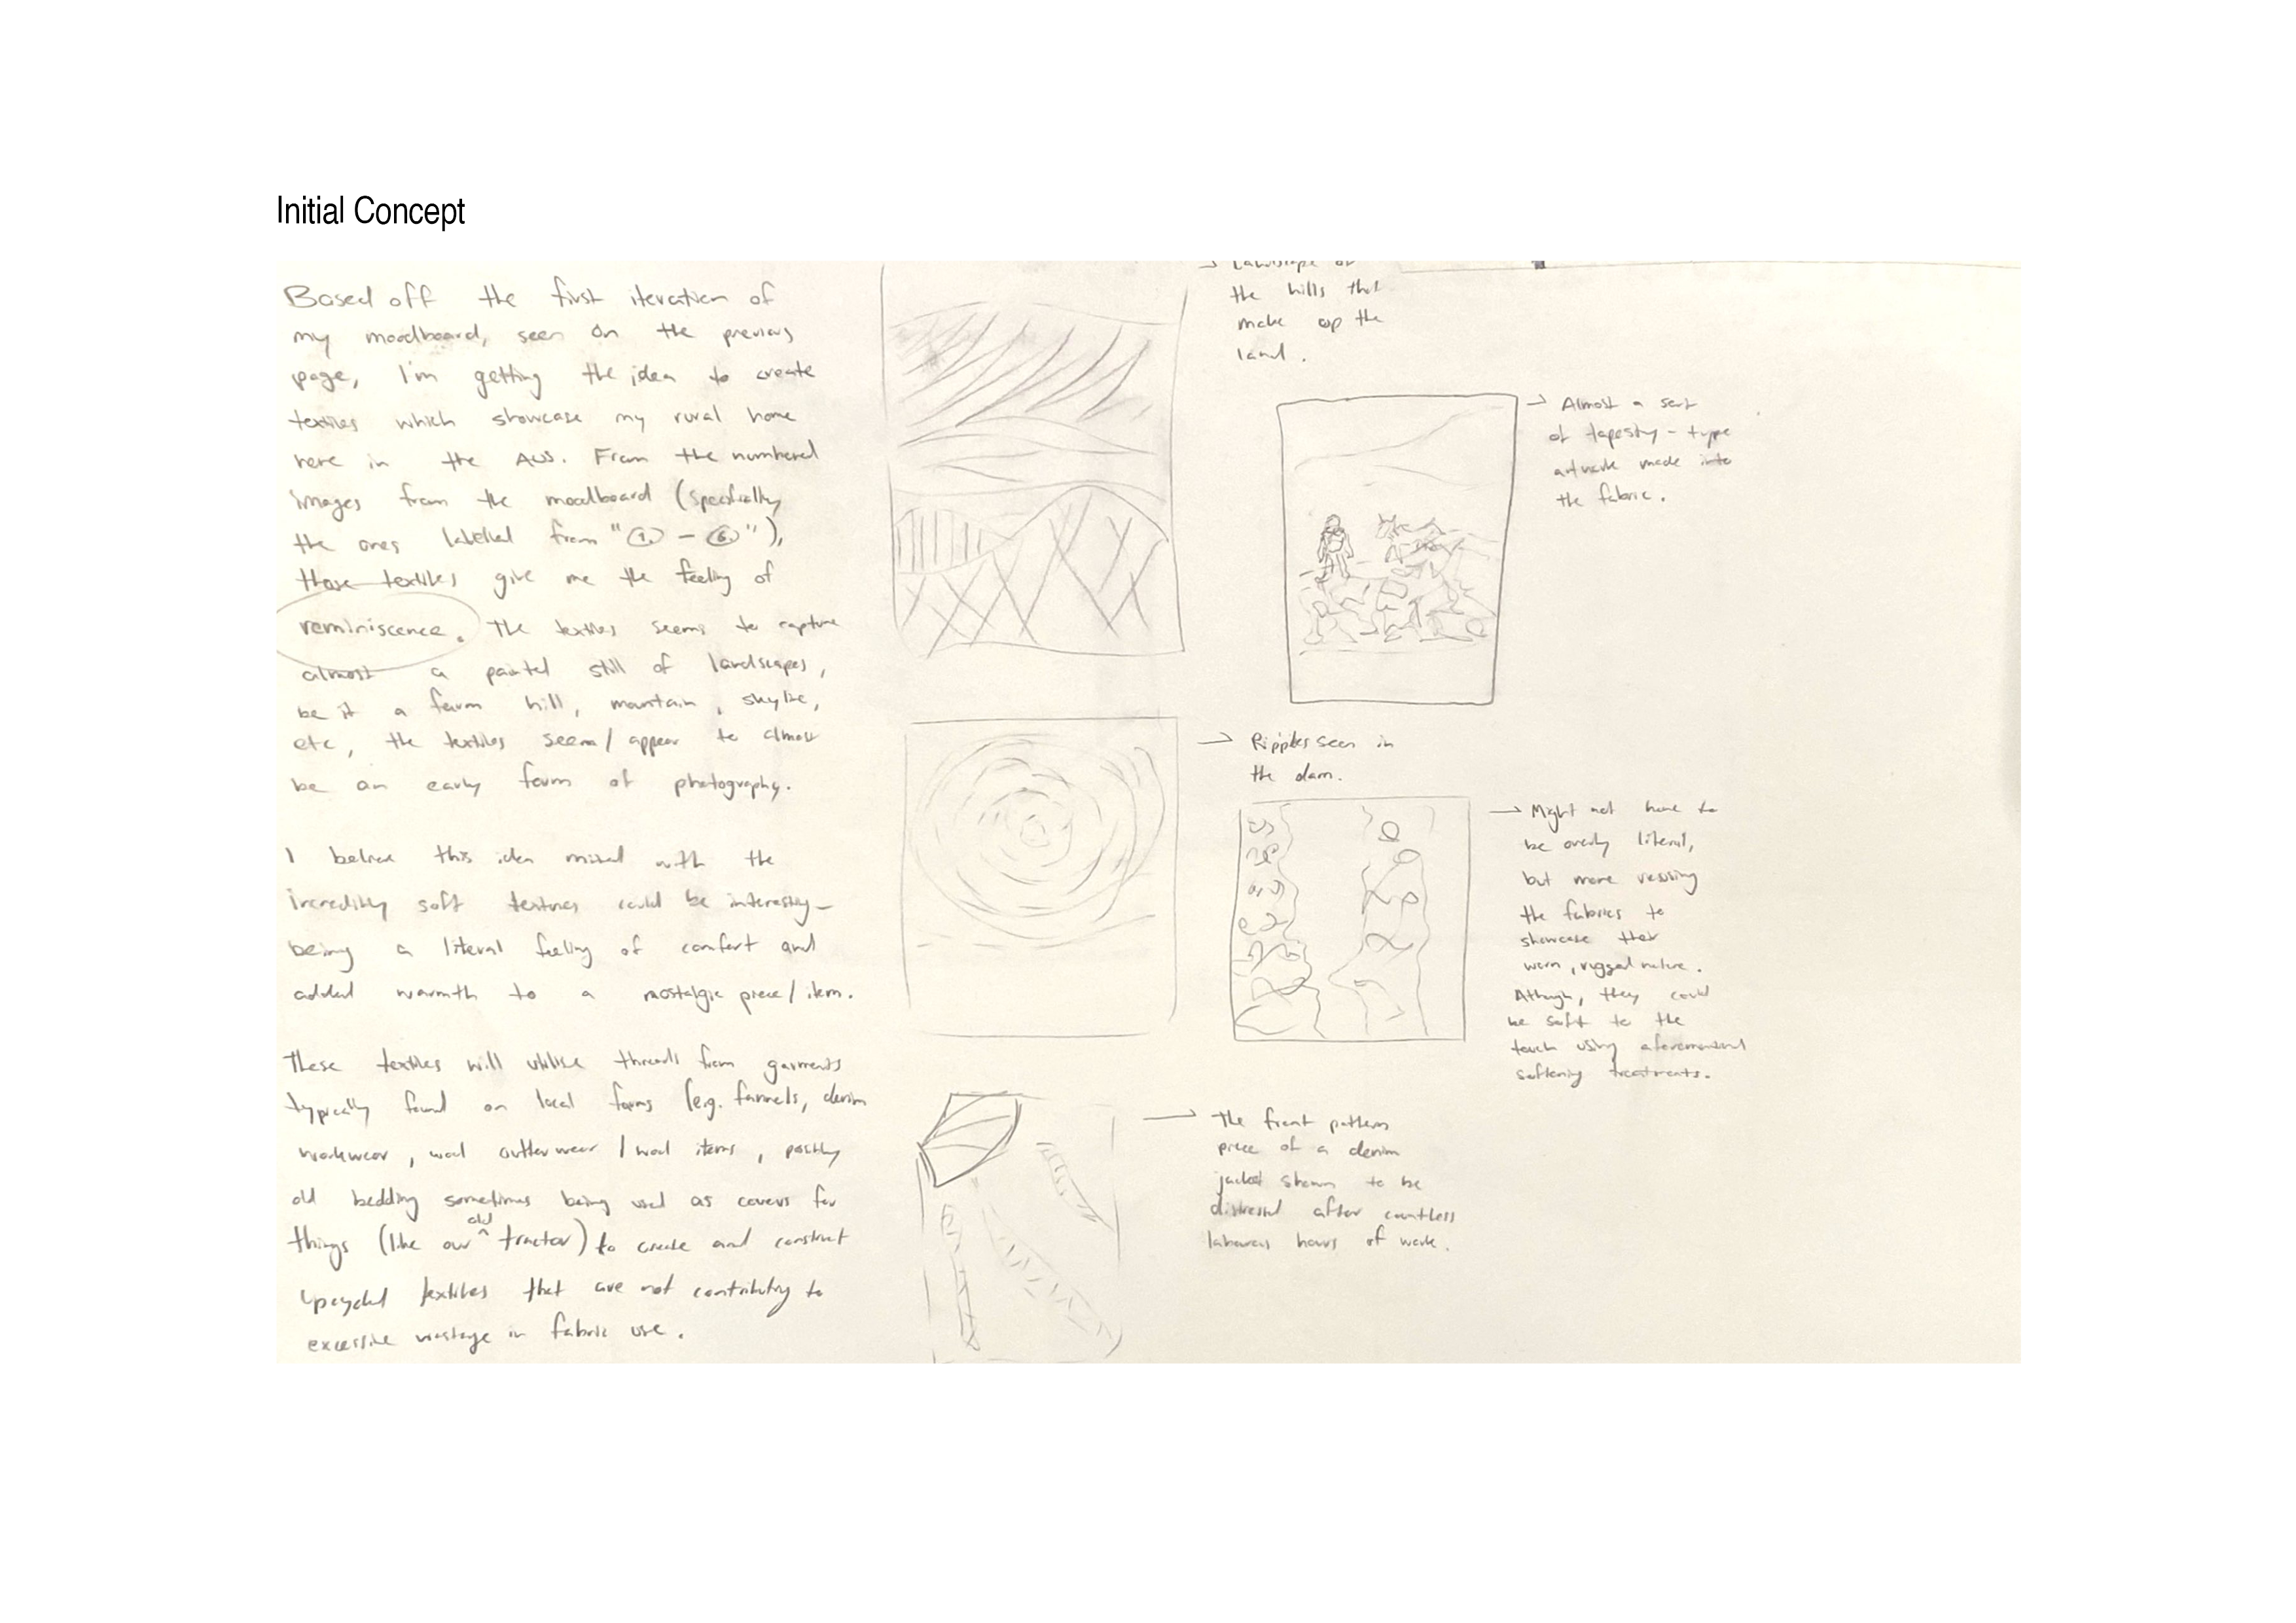 Initial Concept
Based off the first iteration of
my moodboard, seen on the previous
page, I'm getting the idea to create
textiles which showcase my rural home
here in the Aus. From the numbered
images from the moodboard (specifically
the ones labelled from "①. – ⑥."),
those textiles give me the feeling of
reminiscence. The textiles seems to capture
almost a painted still of landscapes,
be it a farm hill, mountain, skyline,
etc, the textiles seem / appear to almost
be an early form of photography.
I believe this idea mixed with the
incredibly soft textures could be interesting –
being a literal feeling of comfort and
added warmth to a nostalgic piece / item.
These textiles will utilise threads from garments
typically found on local farms (e.g. fannels, denim
workwear, wool outterwear / wool items, possibly
old bedding sometimes being used as covers for
things (like our old tractor) to create and construct
upcycled textiles that are not contributing to
excessive wastage in fabric use.
→ Landscape of
the hills that
make up the
land.
→ Almost a sort
of tapesty – type
artwork made into
the fabric.
→ Ripples seen in
the dam.
→ Might not have to
be overly literal,
but more reusing
the fabrics to
showcase their
worn, rugged nature.
Although, they could
be soft to the
touch using aforementioned
softening treatments.
→ The front pattern
piece of a denim
jacket shown to be
distressed after countless
laborous hours of work.